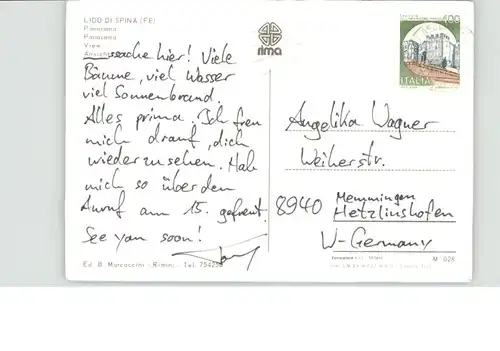 LIDO DI SPINA (FE)
Panorama
Panorama
View
rima
400
ITALIA
sache hier! Viele
Bäume, viel Wasser
viel Sonnenbrand.
Alles prima. Ich freu
mich drauf, dich
wiederzusehen. Hab
mich so über den
Anruf am 15. gefreut.
See you soon!
Angelika Wagner
Weiherstr.
Memmingen
8940 Hetzlinshofen
W-Germany
Ed. B. Marcaccini - Rimini - Tel. 754258
M 028